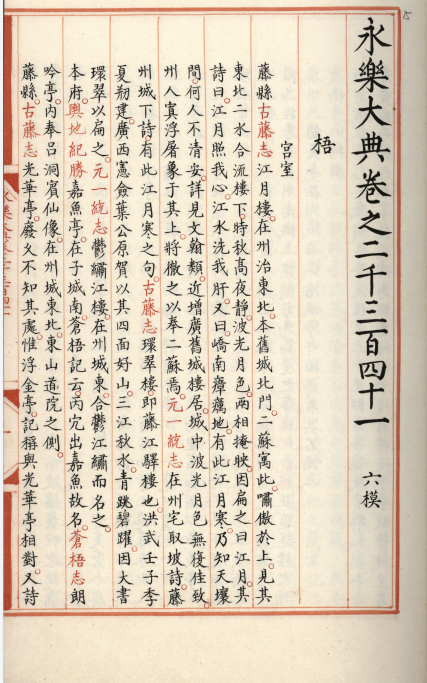 永樂大典卷之二千三百四十一 六模
梧
宫室
藤縣古藤志江月樓在州治東北本舊城北門二蘇寓此嘯傲於上見其
東北二水合流樓下時秋高夜靜波光月色兩相掩映因扁之曰江月其
詩曰江月照我心江水洗我肝又曰嶠南瘴癘地有此江月寒乃知天壤
間何人不清安詳見文翰類近增廣舊城樓居城中波光月色無復佳致
州人寘浮屠象于其上將徹之以奉二蘇焉元一統志在州宅取坡詩藤
州城下詩有此江月寒之句古藤志環翠樓即藤江驛樓也洪武壬子季
夏剏建廣西憲僉葉公原賀以其四面好山三江秋水青跳碧躍因大書
環翠以扁之元一統志鬱繡江樓在州城東合鬱江繡而名之
本府輿地紀勝嘉魚亭在子城南蒼梧記云丙穴出嘉魚故名蒼梧志朗
吟亭内奉吕洞賓仙像在州城東北東山道院之側
藤縣古藤志光華亭廢久不知其處惟浮金亭記稱與光華亭相對又詩